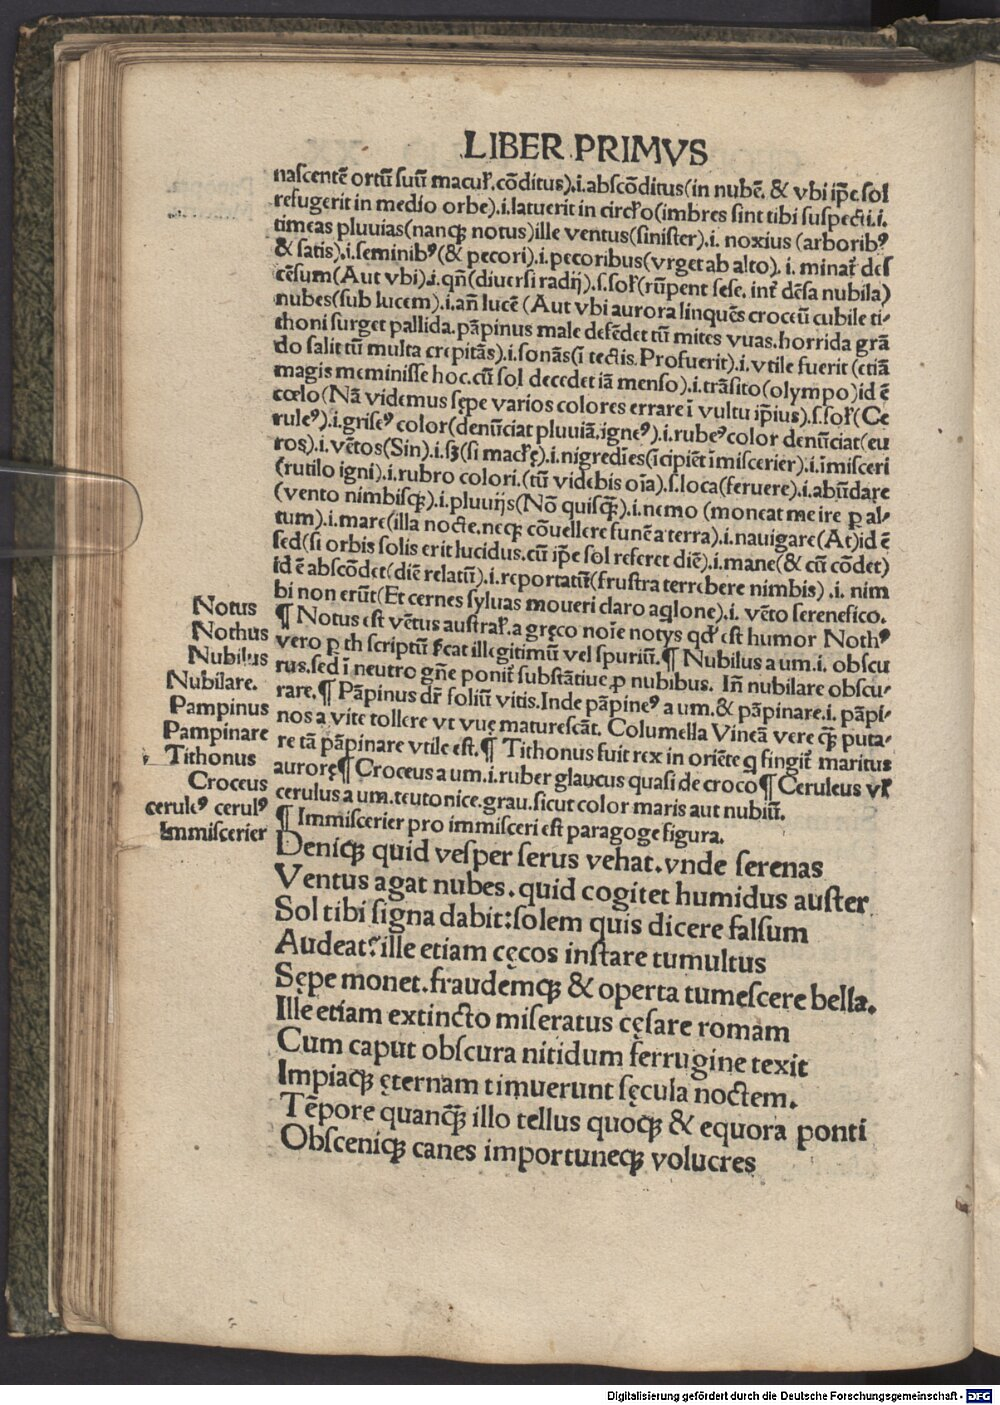 LIBER PRIMVS
nascentē ortū suū macuł.cōditus).i.abscōditus(in nubē. & vbi ip̄e sol
refugerit in medio orbe).i.latuerit in circło(imbres sint tibi suspecti.i.
timeas pluuias(nanqꝫ notus)ille ventus(sinister).i. noxius (arboribꝰ
& satis).i.seminibꝰ(& pecori).i.pecoribus(vrget ab alto). i. minat̄ des
cēsum(Aut vbi).i.qn̄(diuersi radij).s.soł(rūpent sese. int̄ dēsa nubila)
nubes(sub lucem).i.an̄ lucē (Aut vbi aurora linquēs croceū cubile ti⸗
thoni surget pallida.pāpinus male defēdet tū mites vuas.horrida grā
do salit tū multa crepitās).i.sonās(ī tectis.Profuerit).i.vtile fuerit (etiā
magis meminisse hoc.cū sol decedet iā menso).i.trāsito(olympo)id ē
cœlo(Nā videmus sępe varios colores errare ī vultu ip̄ius).s.soł(Ce
ruleꝰ).i.griseꝰ color(denūciat pluuiā.igneꝰ).i.rubeꝰ color denūciat(eu
ros).i.vētos(Sin).i.sꝫ(si macłę).i.nigredīes(īcipiēt īmiscerier).i.īmisceri
(rutilo igni).i.rubro colori.(tū videbis oīa).s.loca(feruere).i.abūdare
(vento nimbisqꝫ).i.pluuijs(Nō quisqꝫ̄).i.nemo (moneat me ire ꝑ al⸗
tum).i.mare(illa nocte.neqꝫ cōuellere funē a terra).i.nauigare(At)id ē
sed(si orbis solis erit lucidus.cū ip̄e sol referet diē).i.mane(& cū cōdet)
id ē abscōdet(diē relatū).i.reportatū(frustra terrebere nimbis) .i. nim
bi non erūt(Et cernes syluas moueri claro aq̇lone).i. vēto serenefico.
¶ Notus est vētus austrał.a gręco noīe notys qđ est humor Nothꝰ
vero ꝑ th scriptū s̄cat illegitimū vel spuriū.¶ Nubilus a um.i. obscu
rus.sed ī neutro gn̄e ponit̄ substātiue ꝓ nubibus. In̄ nubilare obscu⸗
rare.¶ Pāpinus dr̄ foliū vitis.Inde pāpineꝰ a um.& pāpinare.i. pāpi⸗
nos a vite tollere vt vuę maturescāt. Columella Vineā vere qꝫ̄ puta⸗
re tā pāpinare vtile est.¶ Tithonus fuit rex in oriēte q̇ fingit̄ maritus
aurorę¶ Croceus a um.i.ruber glaucus quasi de croco¶ Ceruleus vł
cerulus a um.teutonice.grau.sicut color maris aut nubiū.
¶ Immiscerier pro immisceri est paragoge figura.
Notus
Nothus
Nubilus
Nubilare.
Pampinus
Pampinare
Tithonus
Croceus
ceruleꝰ cerulꝰ
Immiscerier
Deniqꝫ quid vesper serus vehat.vnde serenas
Ventus agat nubes.quid cogitet humidus auster
Sol tibi signa dabit:solem quis dicere falsum
Audeat?ille etiam cęcos instare tumultus
Sępe monet.fraudemqꝫ & operta tumescere bella.
Ille etiam extincto miseratus cęsare romam
Cum caput obscura nitidum ferrugine texit
Impiaqꝫ ęternam timuerunt sęcula noctem.
Tēpore quanqꝫ̄ illo tellus quoqꝫ & equora ponti
Obsceniqꝫ canes importuneqꝫ volucres
Digitalisierung gefördert durch die Deutsche Forschungsgemeinschaft - DFG